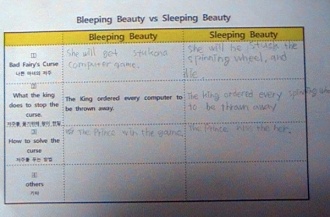 Bleeping Beauty vs Sleeping Beauty
Bleeping Beauty
Sleeping Beauty
[1]
Bad Fairy's Curse
나쁜 마녀의 저주
She will got
computer game.
She will be the
spinning wheel, and
die.
[2]
What the king
does to stop the
curse.
The King ordered every computer to
be thrown away.
The king ordered every
to be thrown away
[3]
How to solve the
curse
저주를 푸는 방법
The Prince win the game.
The Prince her.
[4]
others
기타